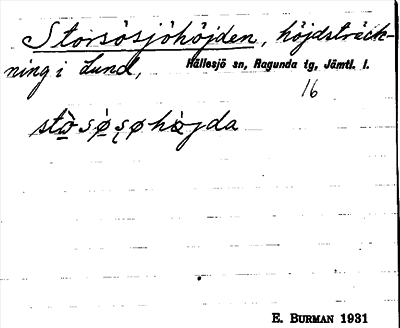 Storsösjöhöjden, höjdsträck-
ning i Lund, Hällesjö sn, Ragunda tg, Jämtl. l.
16
E. BURMAN 1931